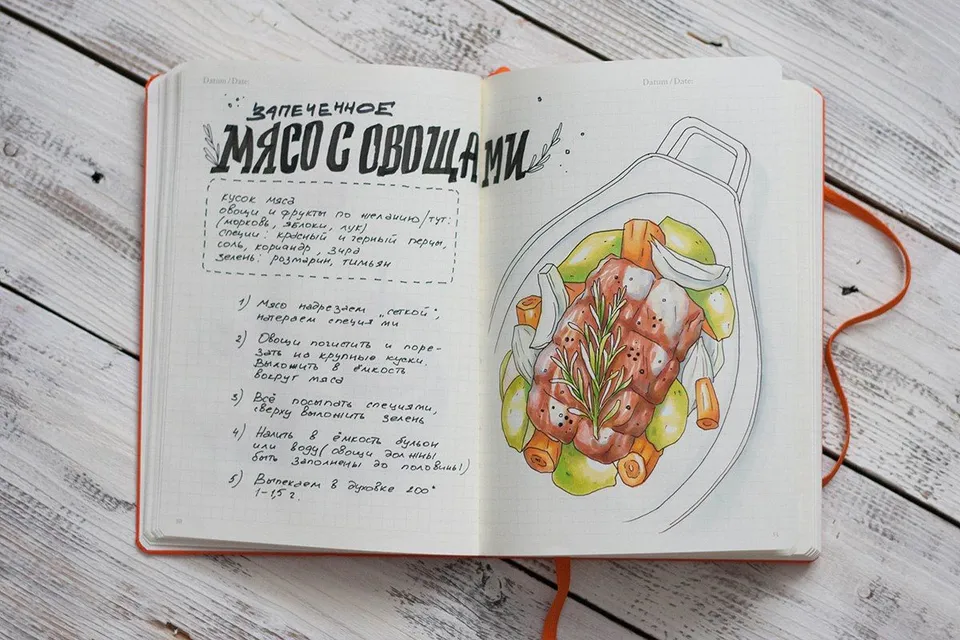 Datum / Date:
Datum / Date:
ЗАПЕЧЕННОЕ
МЯСО С ОВОЩАМИ
кусок мяса
овощи и фрукты по желанию/тут:
(морковь, яблоки, лук)
специи: красный и черный перцы,
соль, кориандр, зира
зелень: розмарин, тимьян
1) Мясо надрезаем „сеткой",
натераем специями
2) Овощи почистить и поре-
зать на крупные куски.
Выложить в ёмкость
вокруг маса
3) Всё посыпать специями,
сверху выложить зелень
4) Налить в ёмкость бульон
или воду (овощи должны
быть заполнены до половины!)
5) Выпекаем в духовке 200°
1-1,5 г.